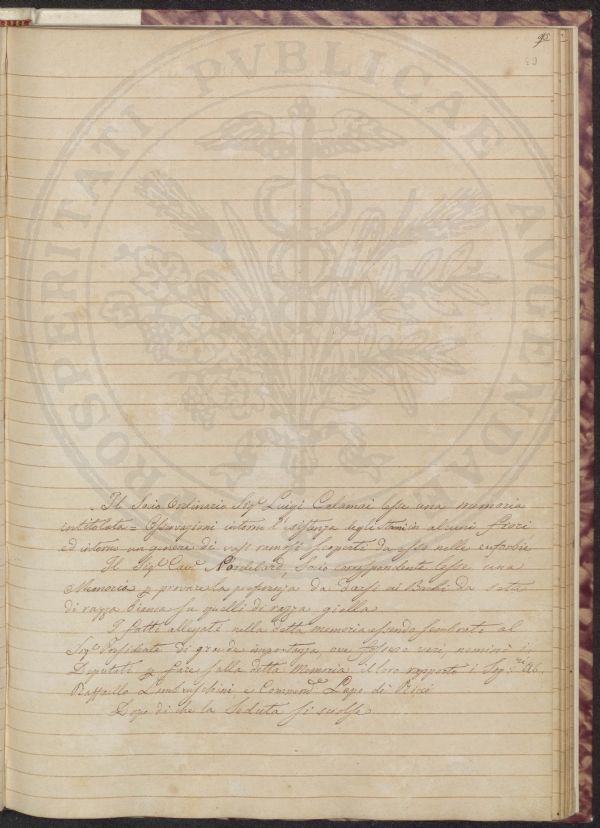 90
PROSPERITATI PVBLICAE AVGENDAE
Il Socio Ordinario Sigr. Luigi Calamai lesse una memoria
intitolata = Osservazioni intorno l'esistenza degli stami in alcuni fiori
ed intorno un genere di vasi ramosi scoperti da esso nelle euforbie
Il Sigr. Cavr. Socio corrispondente lesse una
Memoria p. provare la preferenza da darsi ai Bachi da seta
di razza bianca su quelli di razza gialla
I fatti allegati nella detta memoria essendo sembrati al
Sigr. Presidente di grande importanza ove fossero veri, nominò i
Deputati p. fare sulla detta Memoria il loro rapporto i Sigri. Ab.
Raffaello Lambruschini e Commendre. Lapo de Ricci
Dopo di che la Seduta si sciolse